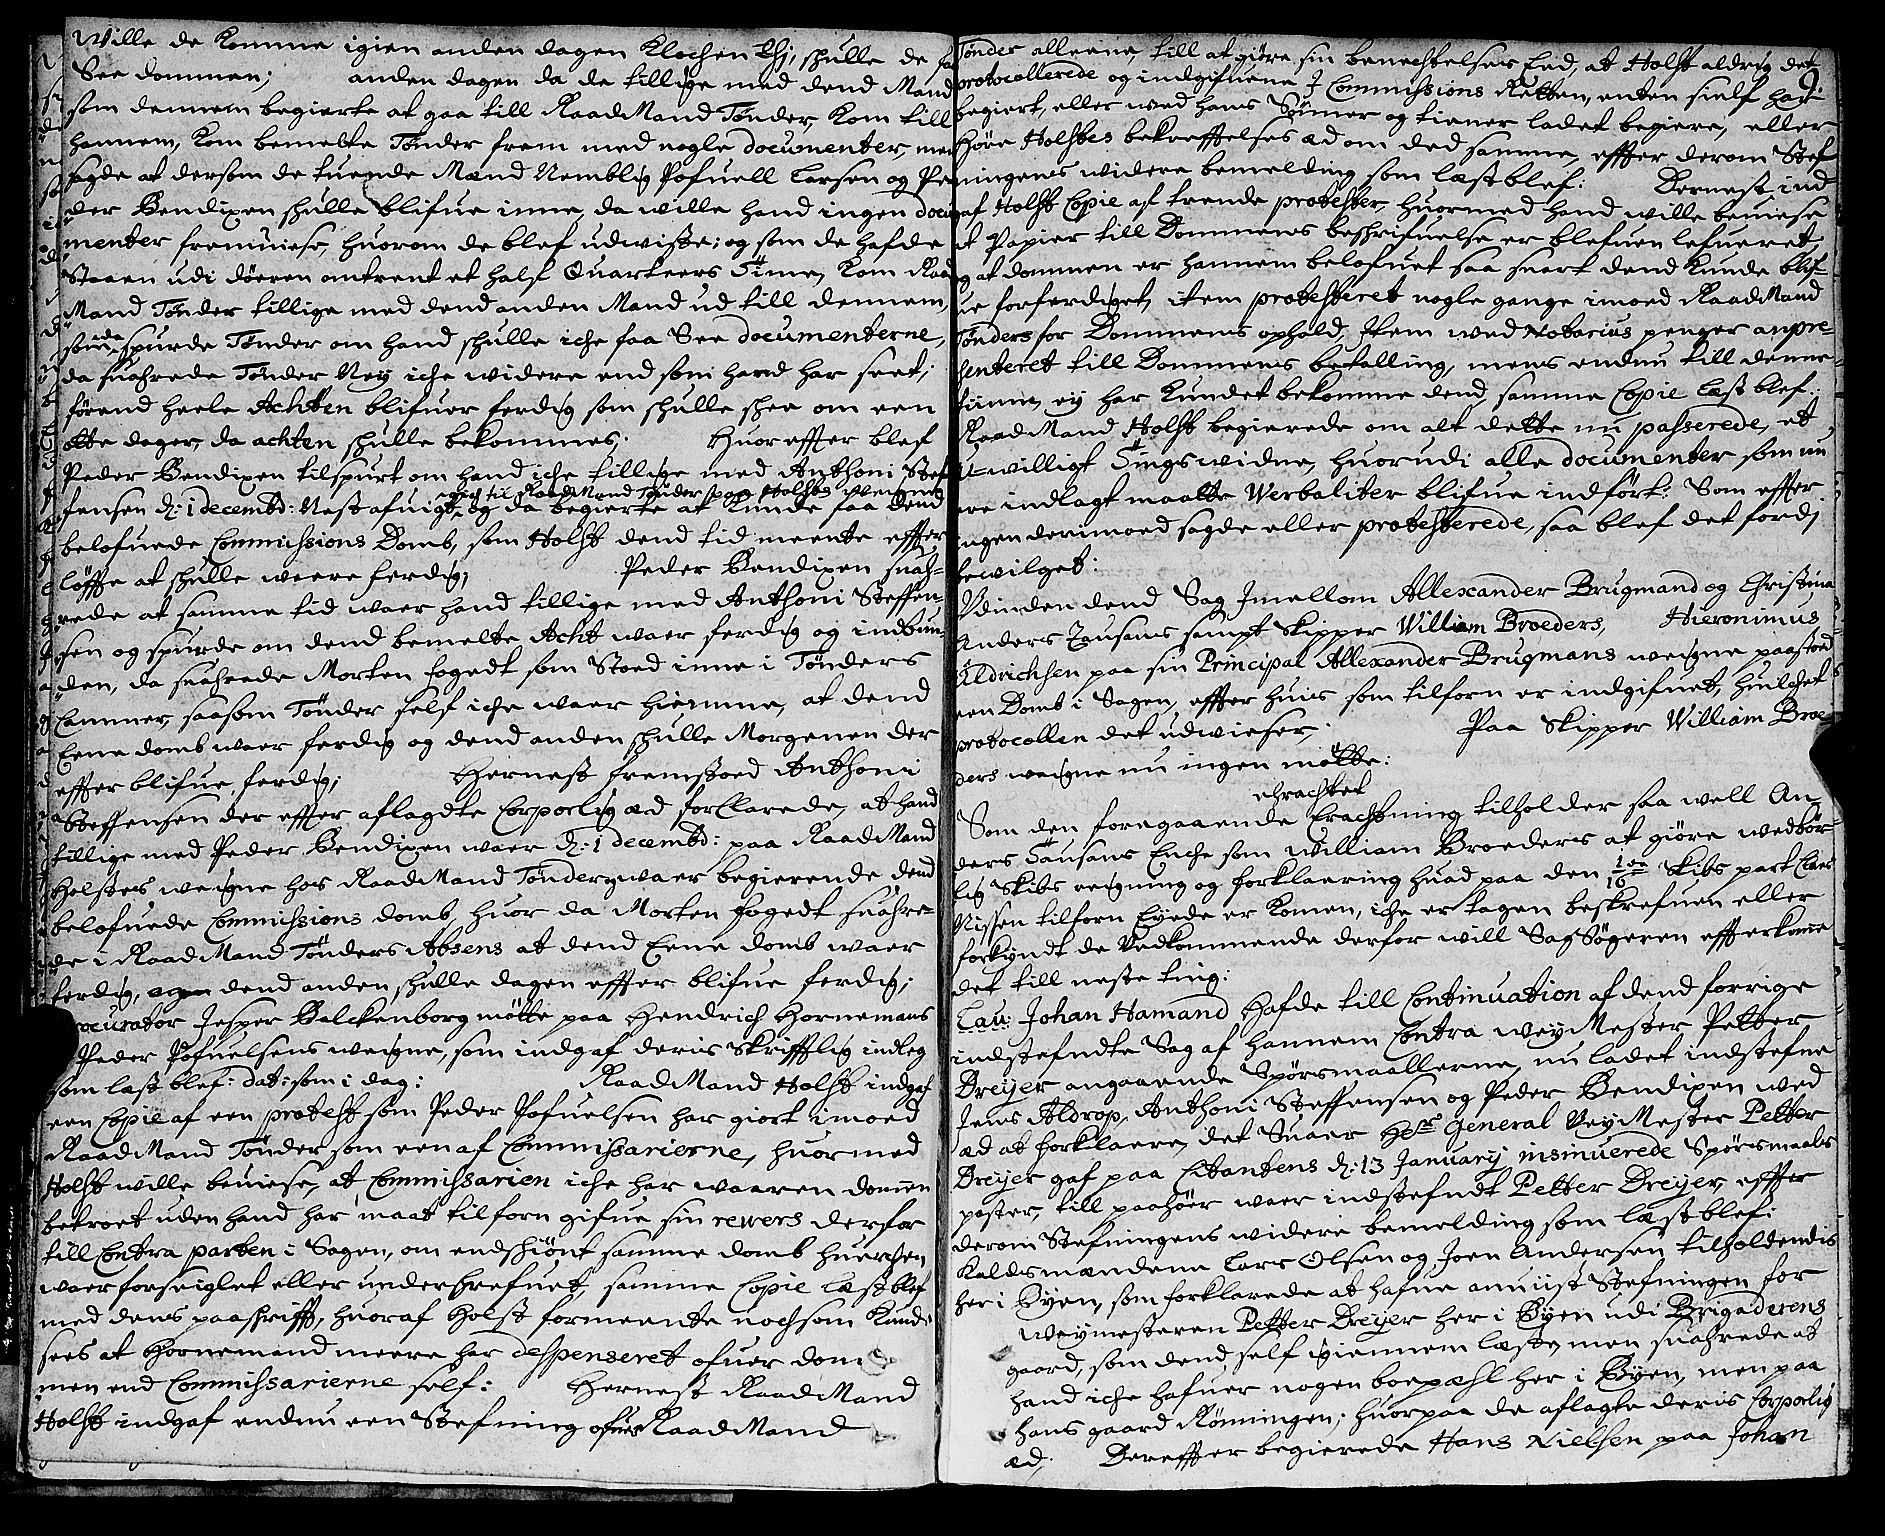 Wille de Komme igien anden dagen Klochen Thj, skulle de faa
See dommen; anden dagen da de tillige med dend Mand
som dennem begierte at gaa till RaadMand Tønder, Kom till
hannem, Kom bemelte Tønder frem med nogle documenter, men
sagde at dersom de tuende Mænd Nemblig Pofuell Larsen og Pe-
der Bendixen skulle blifue inne, da wille hand ingen docu-
menter fremuiese, huorom de blef udwiste; og som de hafde
Staaen udi døeren omtrent et half Quarteers Time, Kom Raad
Mand Tønder tillige med dend anden Mand ud till dennem,
som da spurde Tønder om hand skulle iche faa See documenterne,
da suahrede Tønder Ney iche widere end som hand har seet,
førend heele Achten blifuer ferdig som skulle skee om een
otte dager, da achten skulle bekommes. Huoreffter blef
Peder Bendixen tilspurt om hand iche tillige med Anthoni Stef-
fensen d: 1 decembd: Nestafuigt, og da begierte at Kunde faa dend
belofuede Commissions Domb, som Holst dend tid meente effter
løffte at skulle weere ferdig, Peder Bendixen suah-
rede at samme tid waer hand tillige med Anthoni Steffen-
sen og spurde om dend bemelte Acht waer ferdig og indbun-
den, da suahrede Morten fogedt som Stoed inne i Tønders
Cammer, saasom Tønder self iche waer hiemme, at dend
Eene domb waer ferdig og dend anden skulle Morgenen der
effter blifue ferdig; Hernest fremstoed Anthoni
Steffensen der effter aflagdte Corporlig æd forclarede, at hand
tillige med Peder Bendixen waer d: 1 decembd: paa RaadMand
Holstes weigne hos RaadMand Tønder, waer begierende dend
belofuede Commissions domb, huor da Morten fogedt suahre-
de i RaadMand Tønders Absens at dend Eene domb waer
ferdig, dend anden skulle dagen effter blifue ferdig;
Procurator Jesper Balckenborg møtte paa Hendrich Hornemans
Peder Pofuelsens weigne, som indgaf deris skrifftlig indleg
som læst blef: dat: som i dag: RaadMand Holst indgaf
een Copie af een protest som Peder Pofuelsen har giort imoed
RaadMand Tønder som een af Commissarierne, huormed
Holst wille beuiese, at Commissarien iche har waaren domen
betroet uden hand har maat tilforn gifue sin rewers derfor
till Contra parten i Sagen, om endskiønt samme domb huerchen
waer forseiglet eller underskrefuet, samme Copie Læst blef
med dens paaskrifft, huoraf Holst formeente nochsom Kunde
sees at Hornemand meere har despenseret ofuer dom-
men end Commissarierne self: Hernest RaadMand
Holst indgaf endnu een Stefning ofuer RaadMand
9.
Tønder alleene, till at giøre sin benechtelses Eed, at Holst aldrig det
protocollerede og indgifuene J Commissions Retten, enten sielf har
begiert, eller wed hans Sønner og tiener ladet begiere, eller
høre Holstes bekreffttelses æd om ded samme, effter derom Stef-
ningens widere bemelding som læst blef: Dernest ind-
gaf Holst Copie af trende protester, huormed hand wille beuiese
at Papier till Dommens beskrifuelse er blefuen lefueret,
og at dommen er hannem belofuet saa snart dend Kunde blif-
ue forferdiget, item protesteret nogle gange imoed RaadMand
Tønders for Dommens ophold, Item wed Notarius penger anpre-
senteret till Dommens betalling, mens endnu till denne
tiime ey har Kundet bekomme dend, samme Copie læst blef.
RaadMand Holst begierede om alt dette nu passerede, et
U-willigt Tingswidne, huorudi alle documenter som nu
ere indlagt maatte Verbaliter blifue indført: Som effter
ingen derimoed sagde eller protesterede, saa blef det fordj
bewilget:
Udinden dend Sag Jmellom Allexander Brugmand og Christina
Anders Tausans sampt Skipper William Broeders, Hieronimus
Aldrichsen paa sin Principal Allexander Brugmans weigne paastoed
een Domb i Sagen, effter huis som tilforn er indgifuet, huilchet
protocollen det udwieser; Paa Skipper William Broe-
ders weigne nu ingen møtte:
ehrachtet
Som den foregaaende Erachtning tilholder saa well An-
ders Tausans Enche som William Broeders at giøre wedbør-
lig Skibs reigning og forklaaring huad paa den 1/16 Skibs part Claes
Nissen tilforn Eyede er Komen, iche er tagen beskrefuen eller
forkyndt de Vedkommende derfor will SagSøgeren effterkomme
det till neste ting:
Lau: Johan Hamand Hafde till Continuation af dend forrige
indstefndte Sag af hannem Contra weyMester Petter
Dreyer angaaende Spørsmaallerne, nu ladet indstefne
Jens Aldrop, Anthoni Steffensen og Peder Bendixen wed
æd at forklaere, det Suaer Hr General VeyMester Petter
Dreyer gaf paa Citantens d: 13 January insinuerede Spørsmaals
poster, till paahør waer indstefndt Petter Dreyer, effter
derom Stefningens widere bemelding som læst blef:
Kaldsmændene Lars Olsen og Joen Andersen tilholdendis
her i Byen, som forklarede at hafue anuiist Stefningen for
weymesteren Petter Dreyer her i Byen udi Brigaderens
gaard, som dend self igiennem læste, men suahrede at
hand iche hafuer nogen boepæhl her i Byen, men paa
hans gaard Rønningen; huorpaa de aflagte deris Corporlig
æd; Dereffter begierede Hans Nielsen paa Johan